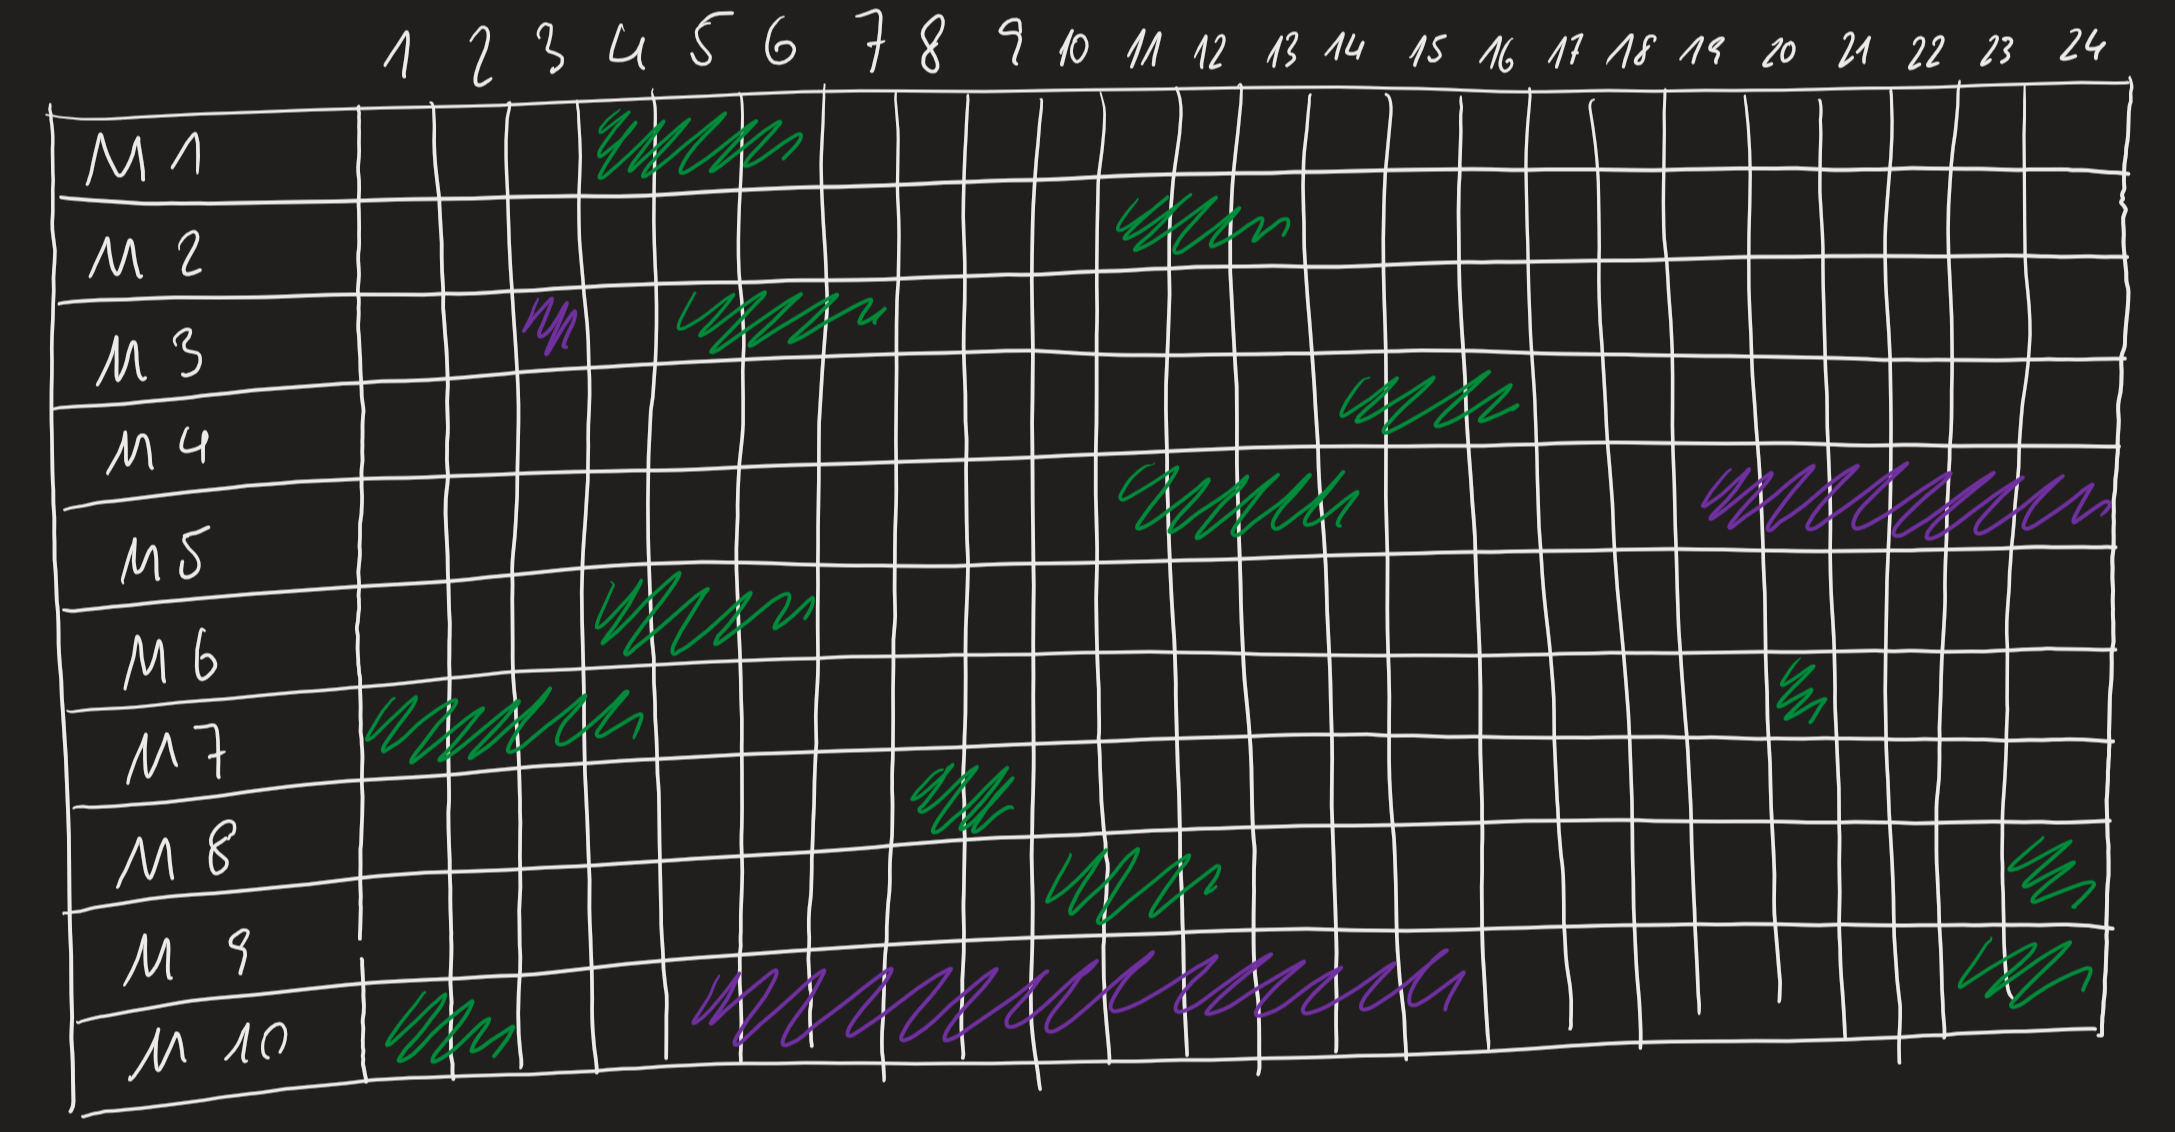 1 2 3 4 5 6 7 8 9 10 11 12 13 14 15 16 17 18 19 20 21 22 23 24
M 1
M 2
M 3
M 4
M 5
M 6
M 7
M 8
M 9
M 10